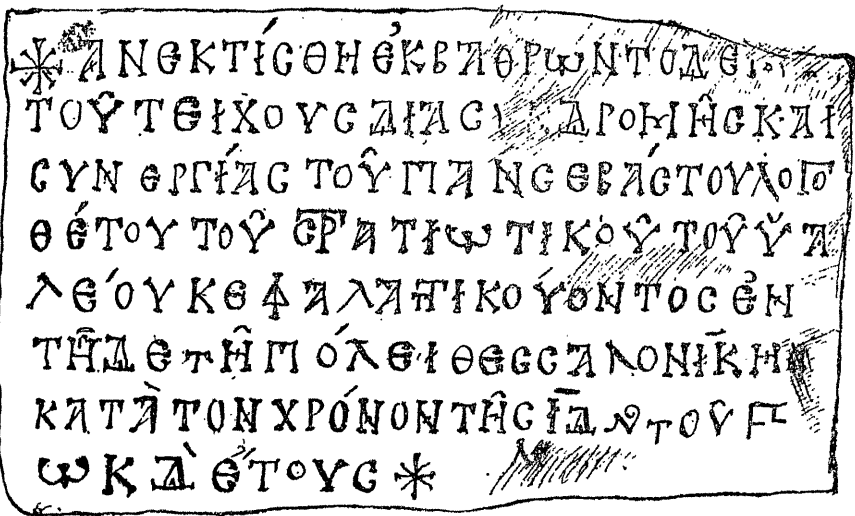 ΑΝΕΚΤΊϹΘΗ ἘΚ ΒΑΘΡΩΝ ΤΟ ΔΕ
ΤΟΥ͂ ΤΕΙΧΟΥϹ ΔΙΑ Ϲ ΔΡΟΜΗ͂Ϲ ΚΑΙ
ϹΥΝΕΡΓΊΑϹ ΤΟΥ͂ ΠΑΝϹΕΒΆϹΤΟΥ ΛΟΓΟ
ΘΈΤΟΥ ΤΟΥ͂ ϹΤΡΑΤΙΩΤΙΚΟΥ͂ ΤΟΥ͂ ὙΑ
ΛΕΌΥ ΚΕΦΑΛΑΤΙΚΟΎΟΝΤΟϹ ἘΝ
ΤΗ͂ΔΕ ΤΗ͂ ΠΌΛΕΙ ΘΕϹϹΑΛΟΝΊΚΗ
ΚΑΤᾺ ΤΟΝ ΧΡΌΝΟΝ ΤΗ͂Ϲ ΙΔ ΤΟΥ͂
ΩΚΔ ΈΤΟΥϹ